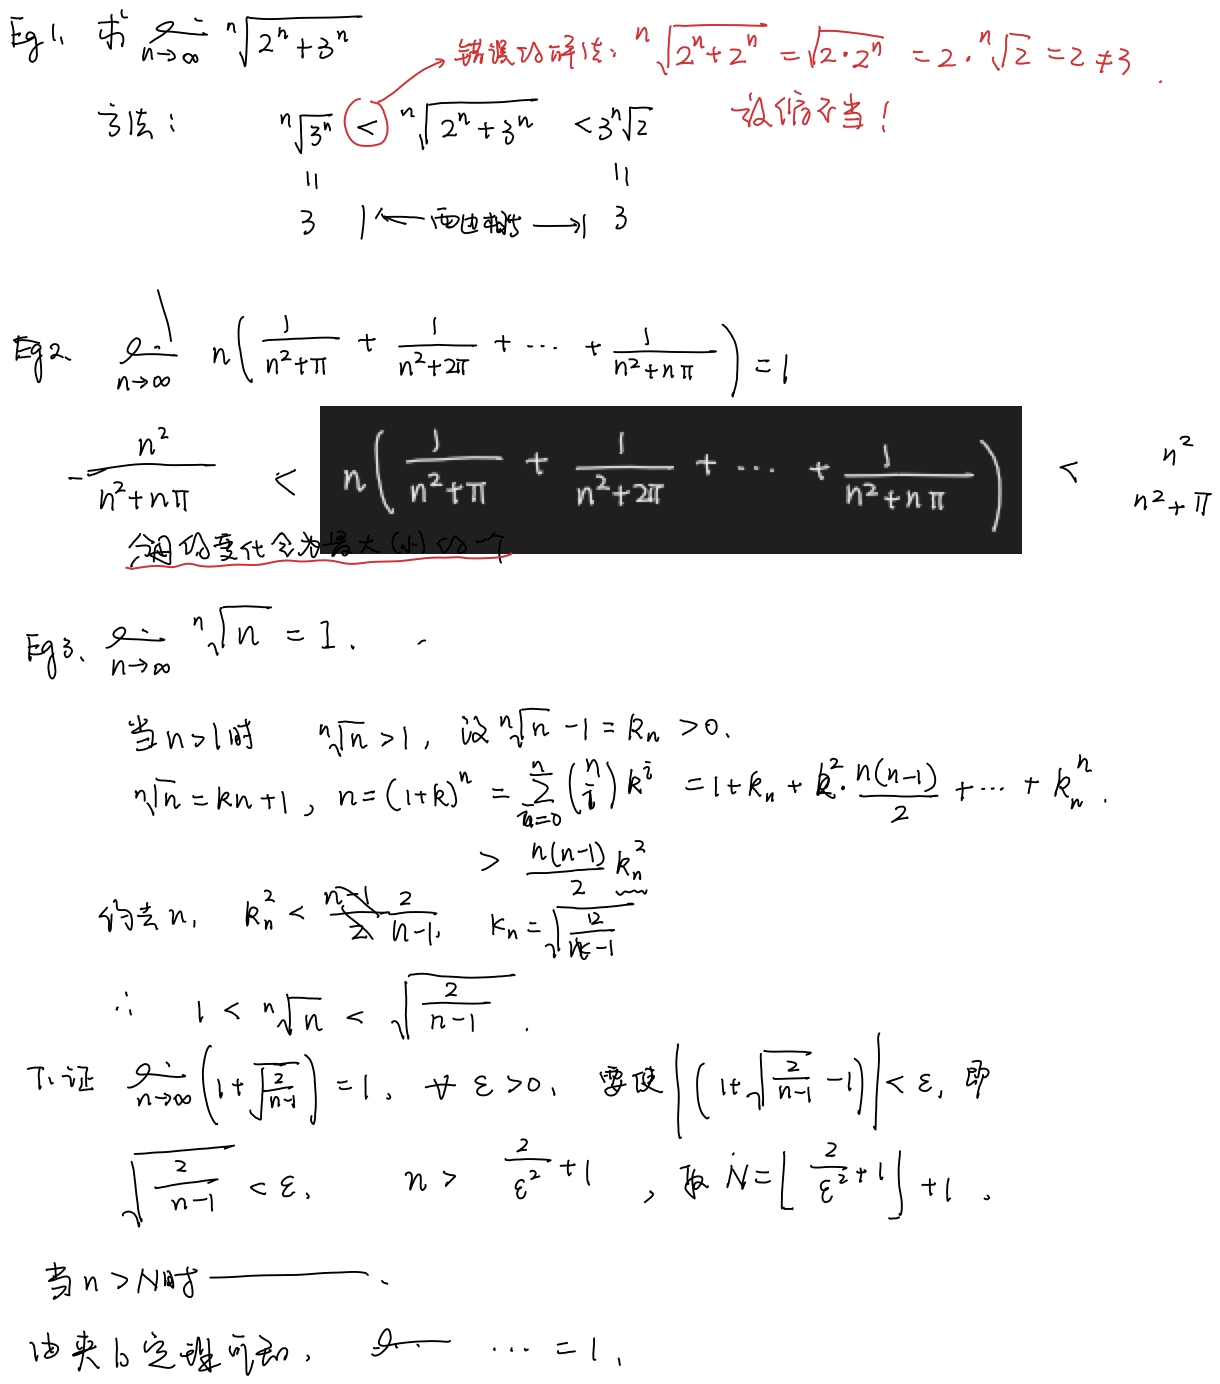 Eg1. 求 lim n→∞ ⁿ√(2ⁿ+3ⁿ)
错误的解法: ⁿ√(2ⁿ+2ⁿ) = √(2·2ⁿ) = 2·ⁿ√2 = 2 ≠ 3.
放缩不当!
方法: ⁿ√3ⁿ < ⁿ√(2ⁿ+3ⁿ) < 3ⁿ√2
= =
3 |← 两边相等 →| 3
Eg2. lim n→∞ n(1/(n²+π) + 1/(n²+2π) + ··· + 1/(n²+nπ)) = 1
n²/(n²+nπ) < n(1/(n²+π) + 1/(n²+2π) + ··· + 1/(n²+nπ)) < n² n²+π
分母均变化全为最大(小)的一个
Eg3. lim n→∞ ⁿ√n = 1.
当 n>1时 ⁿ√n >1, 设 ⁿ√n -1 = kₙ >0.
ⁿ√n = kn+1, n=(1+k)ⁿ = Σ i=0 n (n i) kⁱ = 1+kₙ + k²·n(n-1)/2 + ··· + kₙⁿ.
> n(n-1)/2 kₙ²
约去n, kₙ² < 2/(n-1), kₙ = √(2/(n-1))
∴ 1 < ⁿ√n < √(2/(n-1)).
下证 lim n→∞ (1+√(2/(n-1))) = 1, ∀ ε>0, 要使 |(1+√(2/(n-1)) -1)| < ε, 即
√(2/(n-1)) < ε, n > 2/ε² +1, 取 N=⌊2/ε²+1⌋+1.
当 n>N时 ———.
由夹b定理可知, lim ··· = 1.